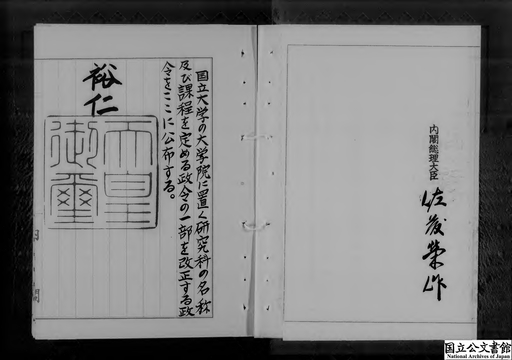 国立大学の大学院に置く研究科の名称
及び課程を定める政令の一部を改正する政
令をここに公布する。
裕仁
天皇
御璽
内閣総理大臣
佐藤榮作
国立公文書館
National Archives of Japan